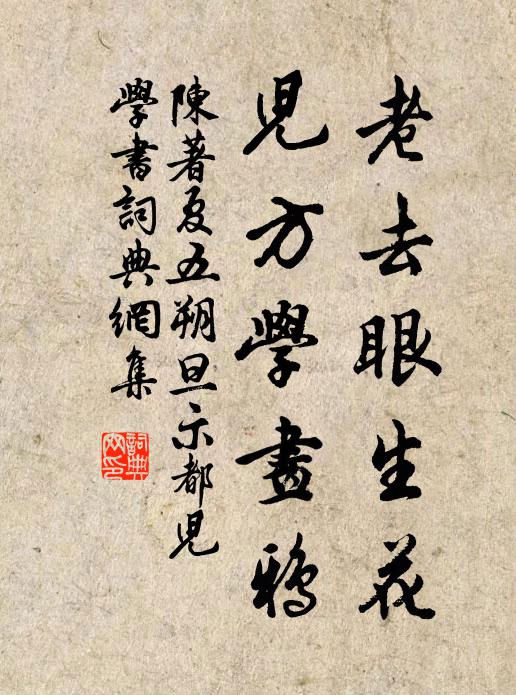 老去眼生花
兒方學畫鴉
陳著夏五朔旦示都兒
學書詞典網集
詞典
网印